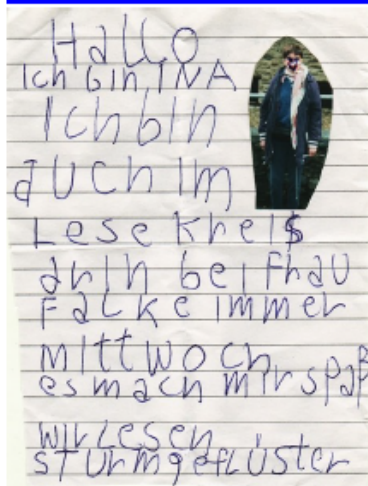 Hallo
Ich bin INA
Ich bin
auch im
Lese Kreis
drin bei Frau
Falke immer
mittwoch
es mach mir spaß
wir Lesen
STurmgefLüster